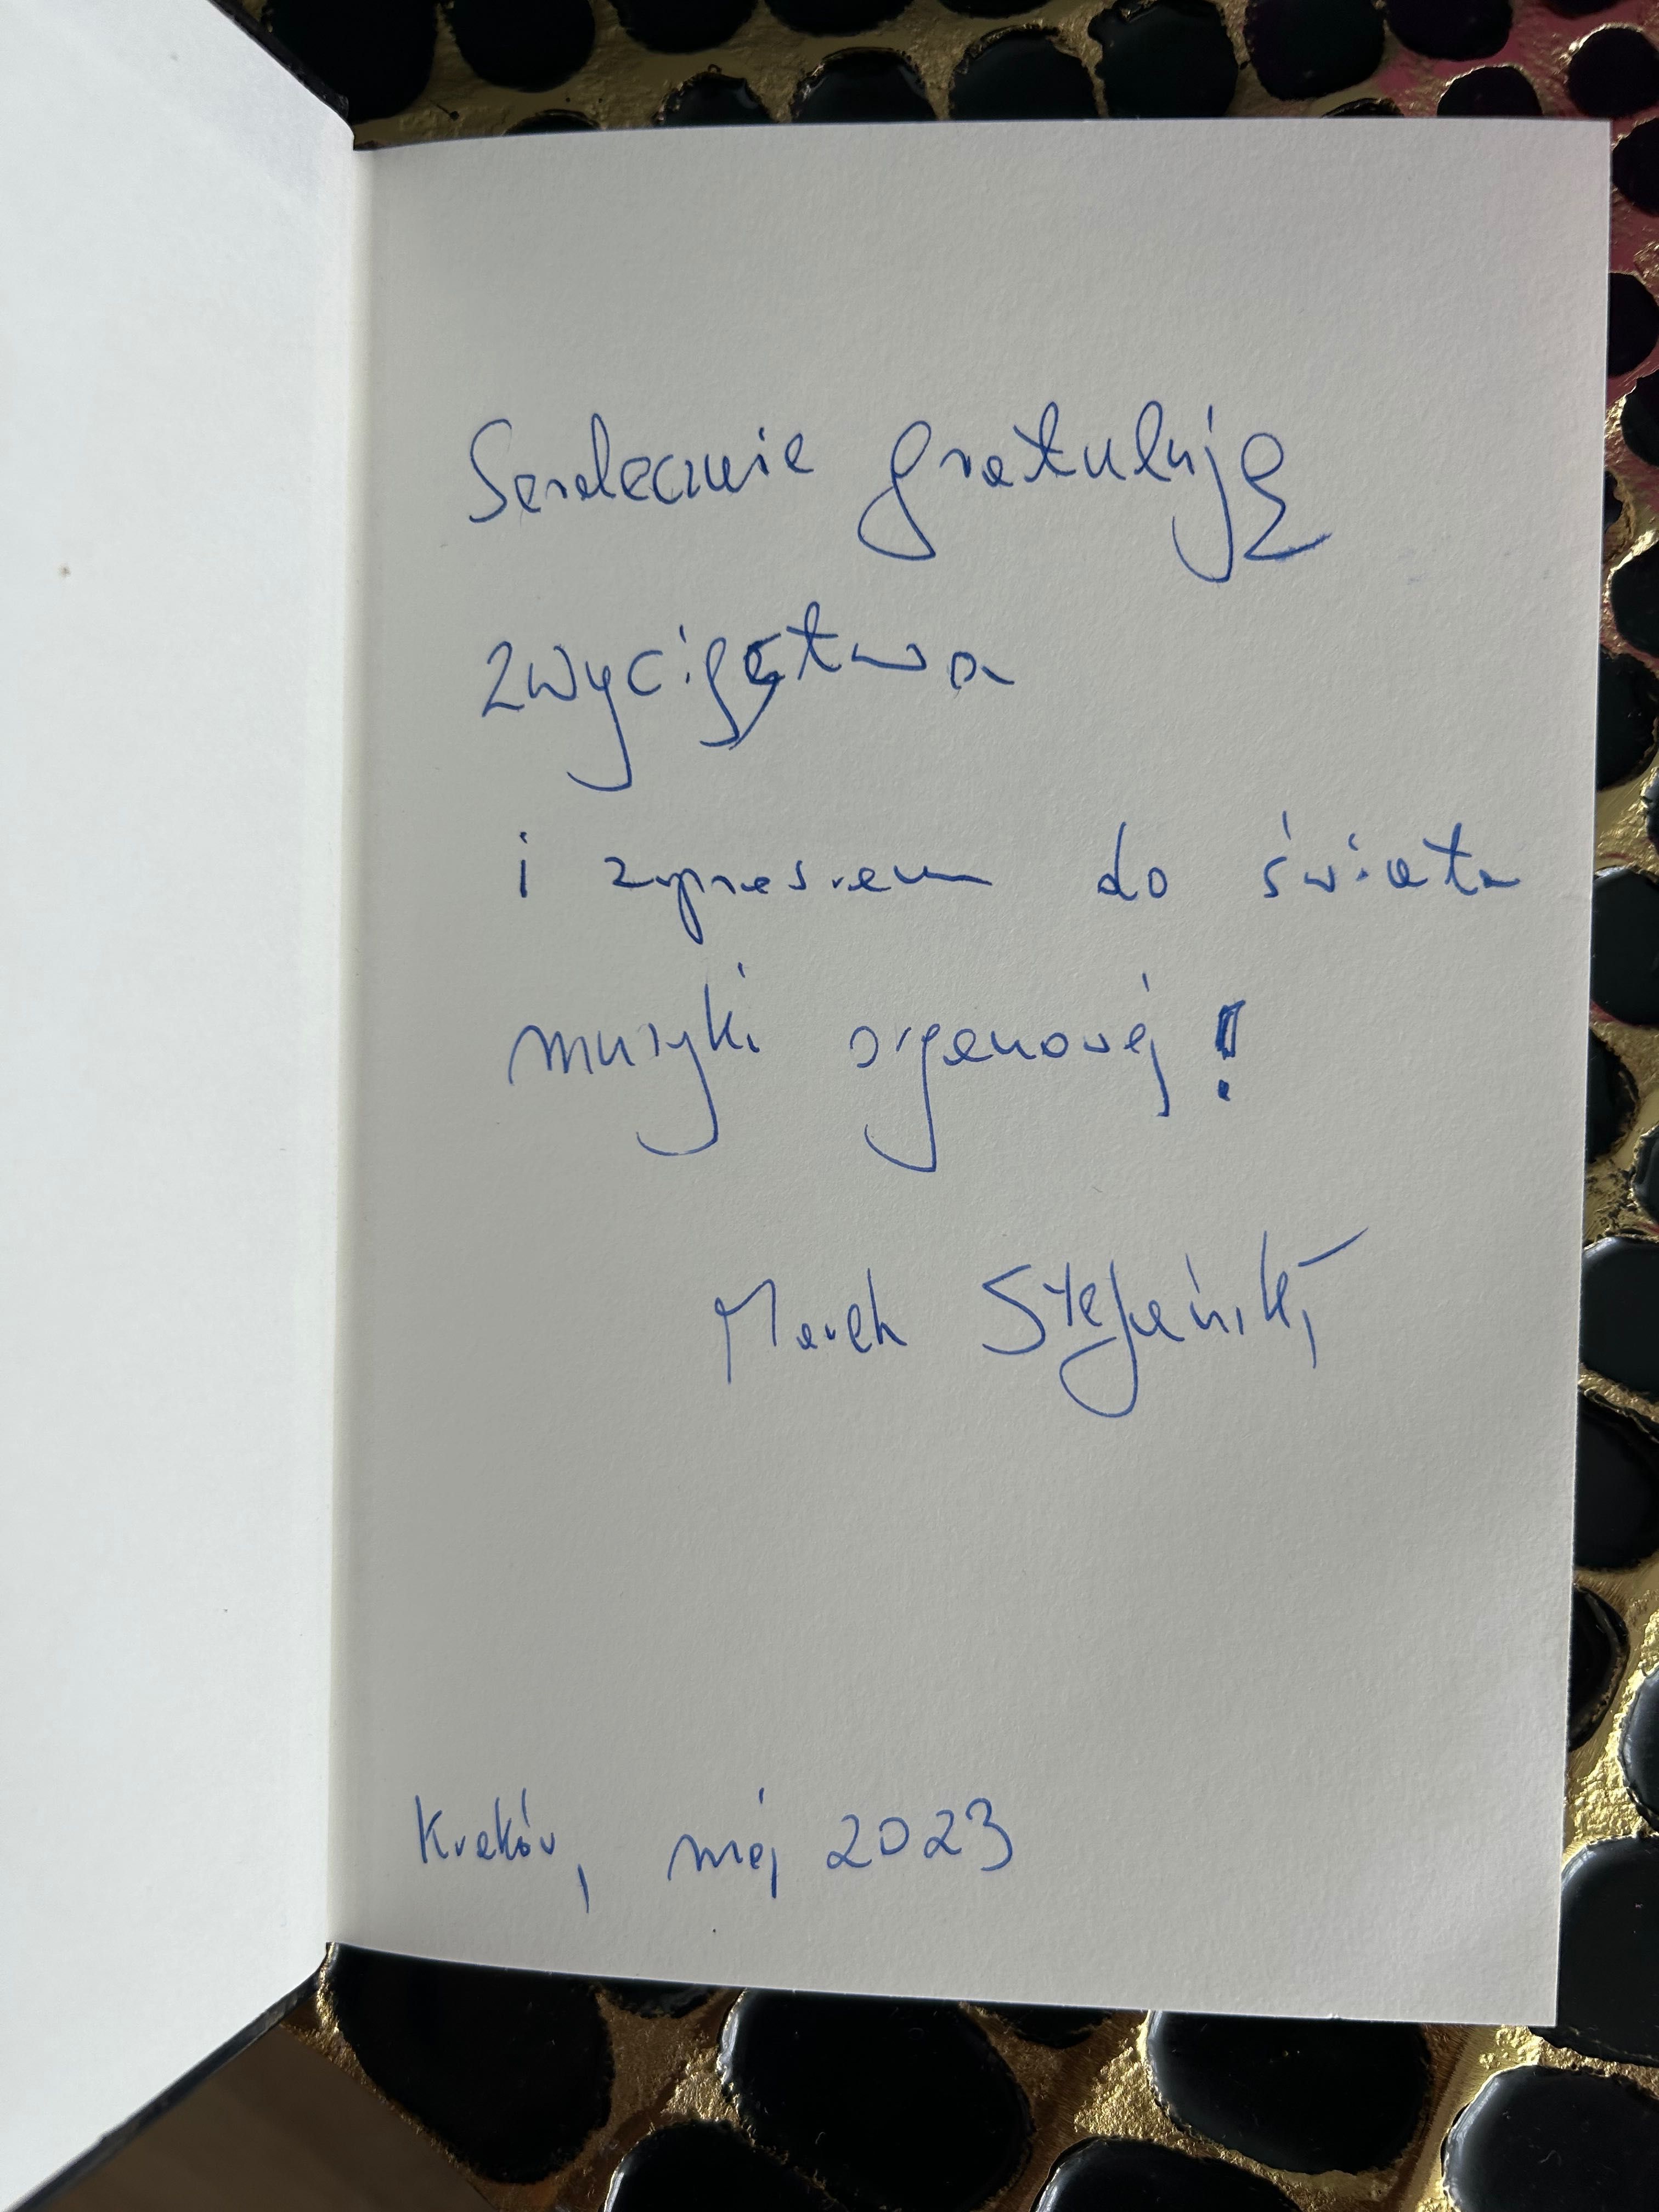 Serdecznie gratuluję
zwycięstwa
i zapraszam do świata
muzyki organowej!
Marek Stefański
Kraków, maj 2023